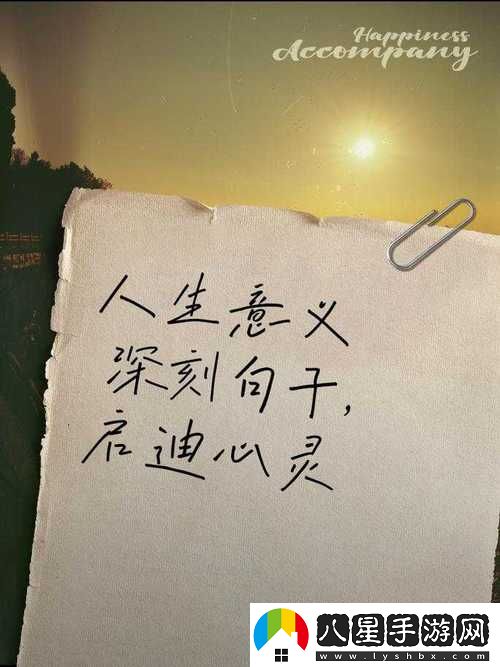 Happiness
Accompany
人生意义
深刻句子,
启迪心灵
八星手游网
www.lyshbx.com